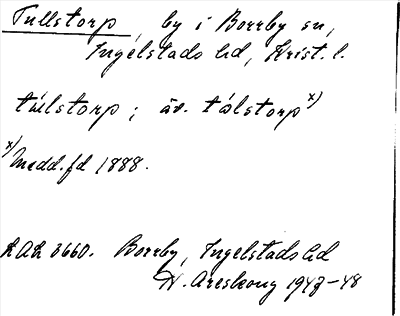 Tullstorp, by i Borrby sn,
Ingelstads hd, Krist. l.
tulstorp; äv. tolstorp x)
x) Medd. fd 1888.
LAL 3660. Borrby, Ingelstads hd
W. Areskoug 1947-48